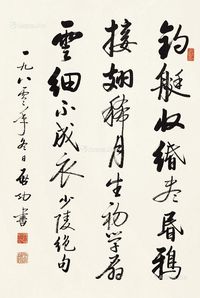 釣艇收緡盡昏鴉
接翅稀月生初學扇
雲細不成衣少陵絕句
一九八零年冬日啟功書